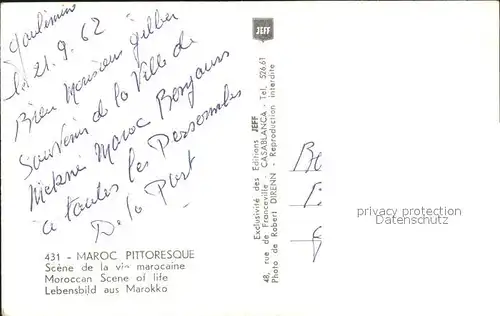 Goulimine
le 21.9.62
Bien Monsieur gilber
Souvenir de la Ville de
Meknè Maroc Bonjours
à toutes les Personnes
De la Part
431 - MAROC PITTORESQUE
Scène de la vie marocaine
Moroccan Scene of life
Lebensbild aus Marokko
JEFF
Exclusivité des Editions JEFF
48, rue de Franceville - CASABLANCA - Tel. 526.61
Photo de Robert DIRENN - Reproduction interdite
privacy protection
Datenschutz